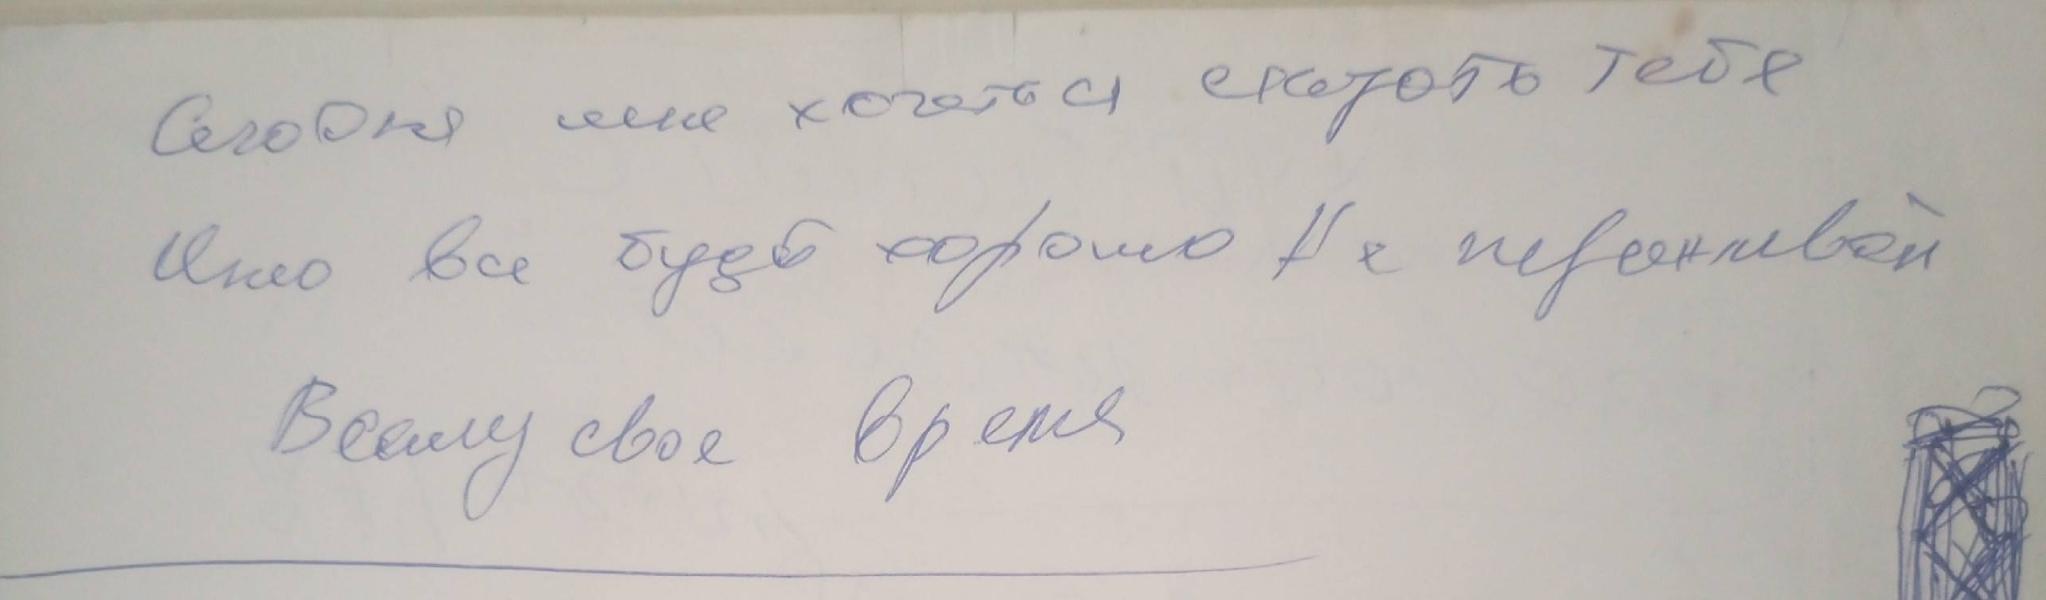 Сегодня мне хочеться сказать тебе
Что все будет хорошо Не переживай
Всему свое время